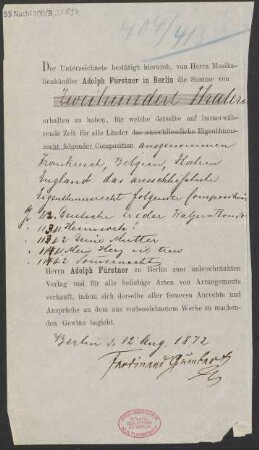 55 Nachl 100/B,
404/413
Der Unterzeichnete bestätigt hierdurch, von Herrn Musika-
lienhändler Adolph Fürstner in Berlin die Summe von
Zweihundert Thalern
erhalten zu haben, für welche derselbe auf immerwäh-
rende Zeit für alle Länder das ausschliessliche Eigenthums-
recht folgender Composition ausgenommen
Frankreich, Belgien, Italien
England das ausschliessliche
Eigenthumsrecht folgender Composition
112. Deutsche Lieder
Heimweh!
Mutter
Mein Herz
Herrn Adolph Fürstner zu Berlin zum unbeschränkten
Verlag und für alle beliebige Arten von Arrangements
verkauft, indem sich derselbe aller ferneren Anrechte und
Ansprüche an dem aus vorbezeichnetem Werke zu machen-
den Gewinn begiebt.
Berlin d. 12 Aug. 1872
Ferdinand Gumbert